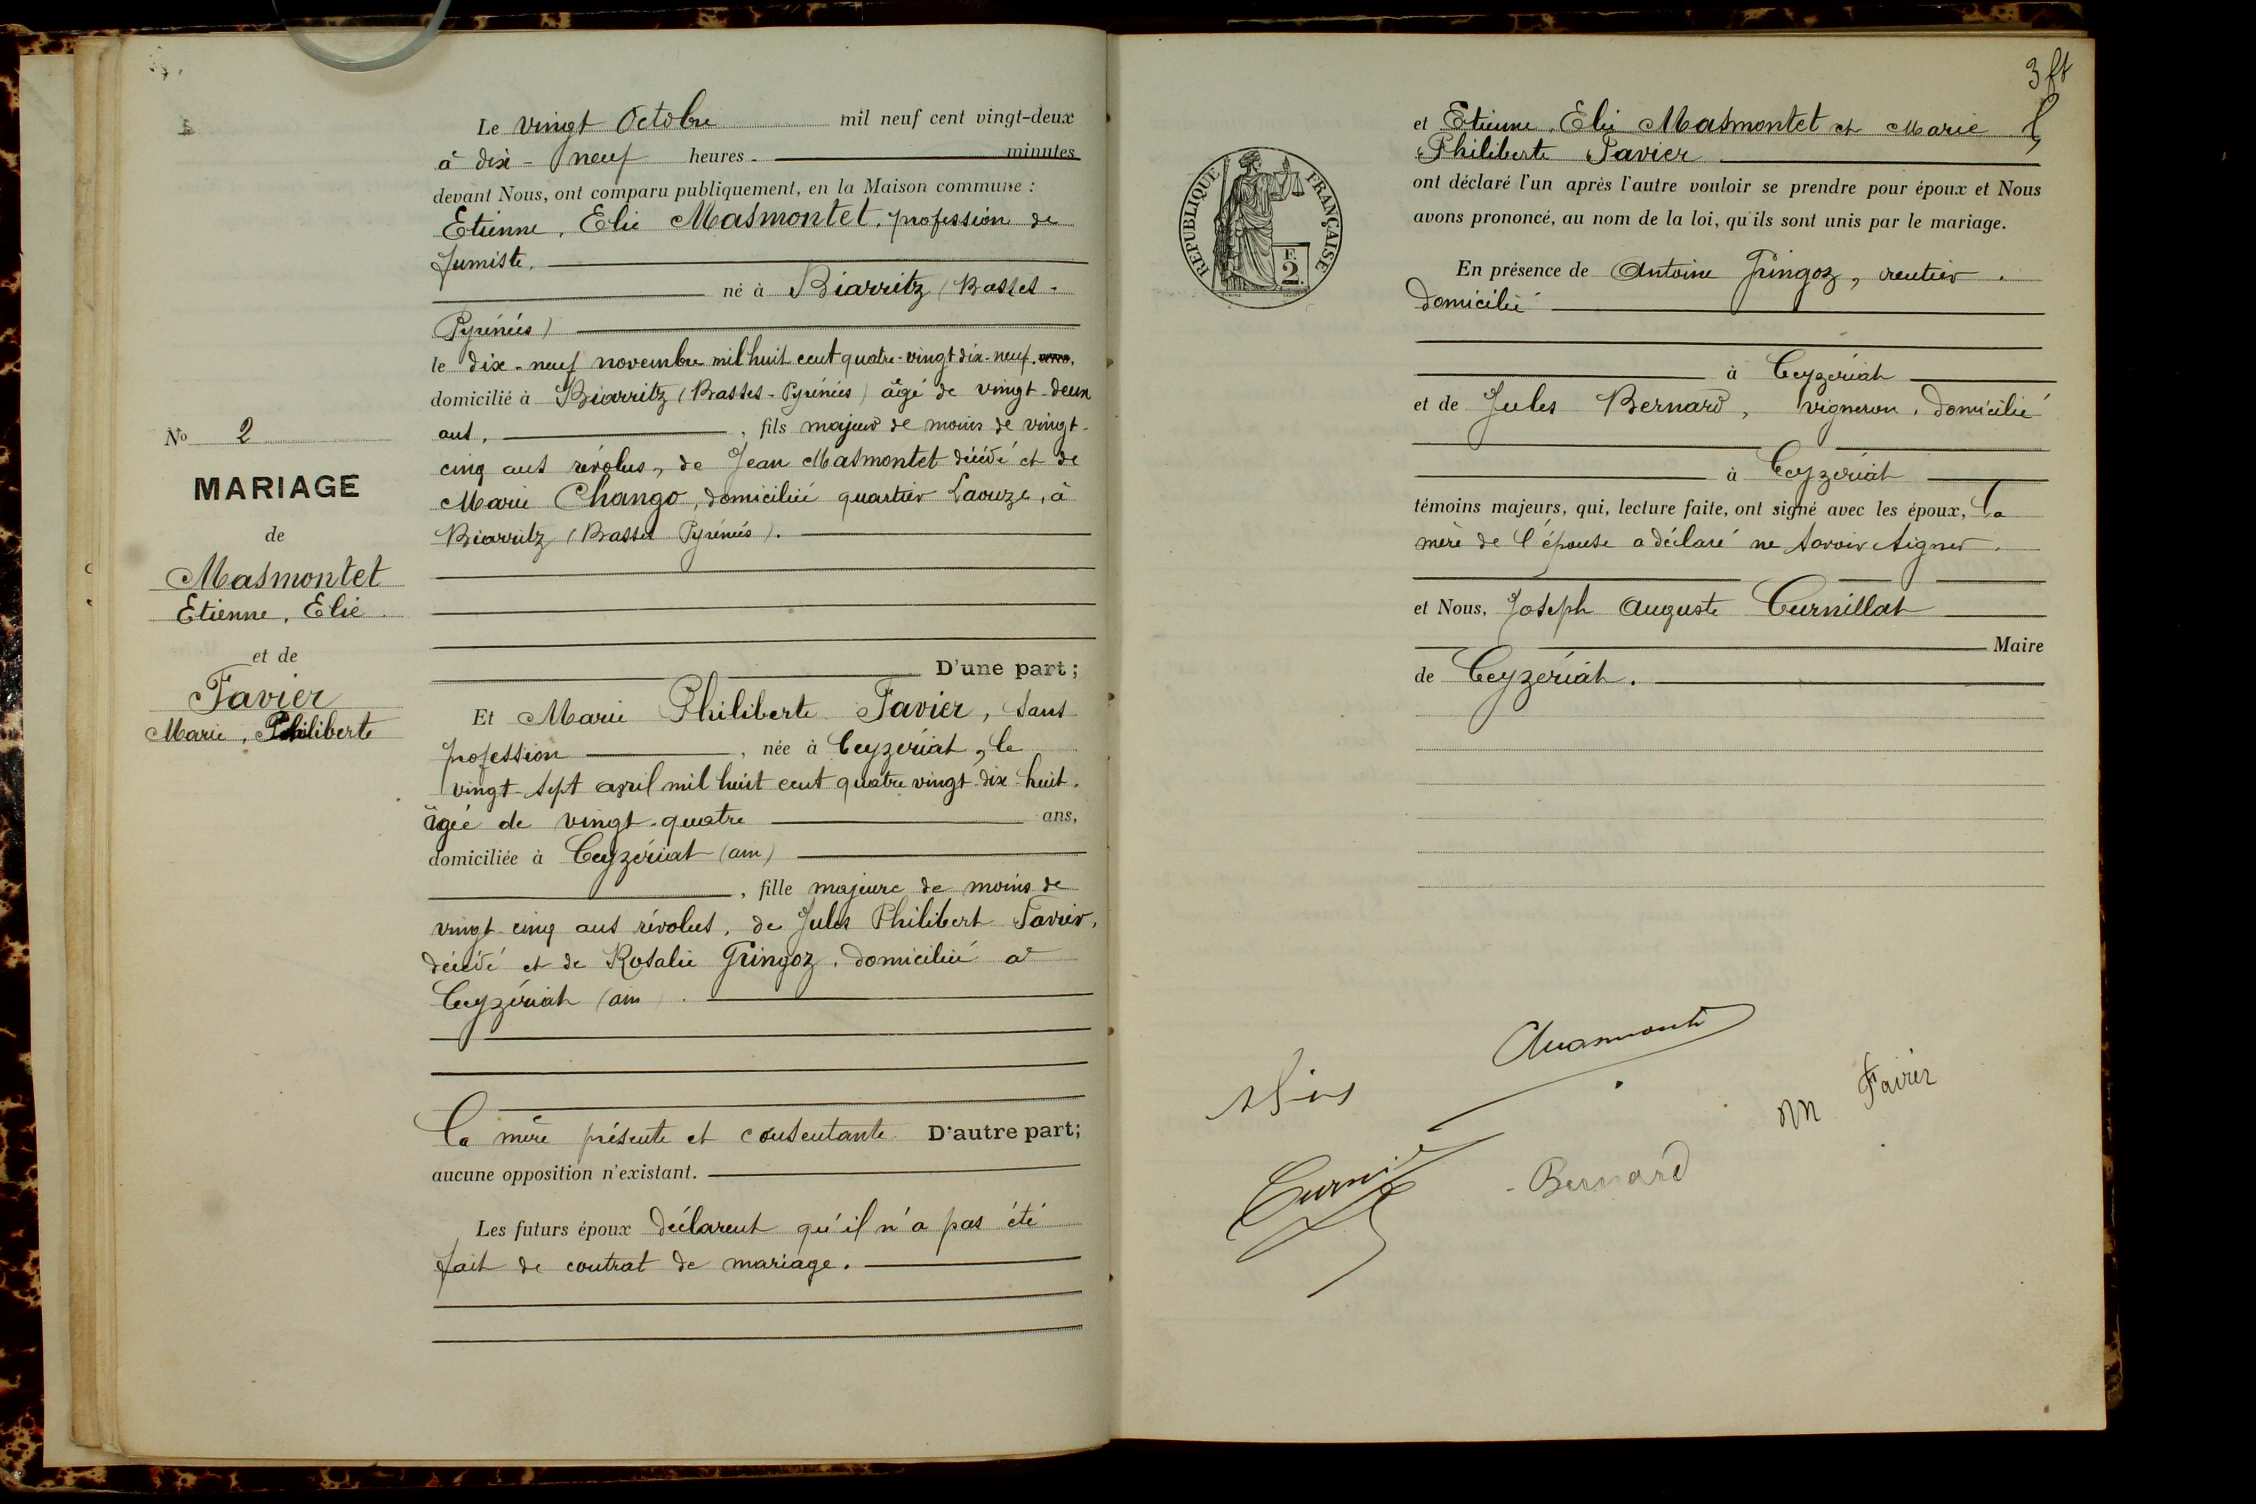 Le vingt Octobre mil neuf cent vingt-deux
à dix-neuf heures. minutes
devant Nous, ont comparu publiquement, en la Maison commune :
Etienne, Elie Masmontet, profession de
fumiste.
né à Biarritz (Basses-
Pyrénées)
le dix-neuf novembre mil huit cent quatre-vingt dix-neuf.
domicilié à Biarritz (Basses-Pyrénées) âgé de vingt-deux
ans, , fils majeur de moins de vingt-
cinq ans révolus, de Jean Masmontet décédé et de
Marie Chango, domiciliée quartier Laouze, à
Biarritz (Basses Pyrénées).
D'une part ;
No 2
MARIAGE
de
Masmontet
Etienne, Elie
et de
Favier
Marie, Philiberte
Et Marie Philiberte Favier, sans
profession , née à Ceyzériat, le
vingt-sept avril mil huit cent quatre vingt-dix-huit.
âgée de vingt-quatre ans,
domiciliée à Ceyzériat (ain)
, fille majeure de moins de
vingt cinq ans révolus, de Jules Philibert Favier,
décédé et de Rosalie Gringoz, domiciliée à
Ceyzériat (ain).
La mère présente et consentante D'autre part;
aucune opposition n'existant.
Les futurs époux déclarent qu'il n'a pas été
fait de contrat de mariage.
3 ft
et Etienne, Elie Masmontet et Marie
Philiberte Favier
ont déclaré l'un après l'autre vouloir se prendre pour époux et Nous
avons prononcé, au nom de la loi, qu'ils sont unis par le mariage.
REPUBLIQUE FRANÇAISE
F.
2
En présence de Antoine Gringoz, rentier.
domicilié
à Ceyzériat
et de Jules Bernard, vigneron, domicilié
à Ceyzériat
témoins majeurs, qui, lecture faite, ont signé avec les époux, la
mère de l'épouse a déclaré ne savoir signer.
et Nous, Joseph Auguste Curnillat
Maire
de Ceyzériat.
M Favier
Bernard